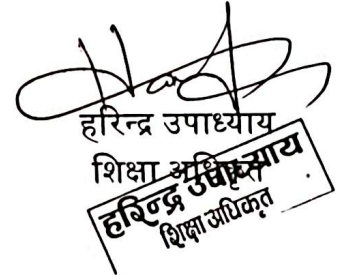 हरिन्द्र उपाध्याय
शिक्षा अधिकृत
हरिन्द्र उपाध्याय
शिक्षा अधिकृत